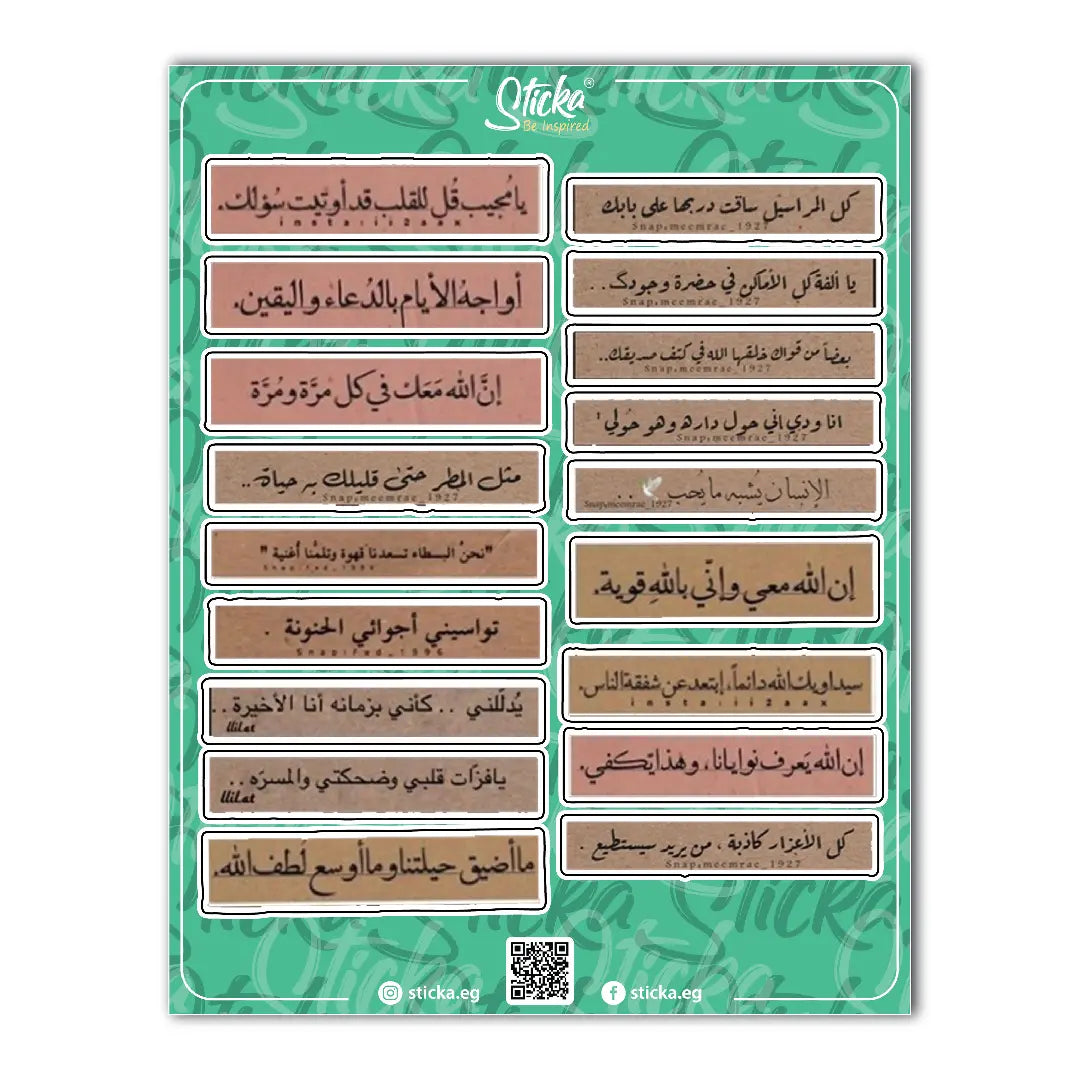 Sticka®
Be Inspired
يا مُجيب قُل للقلب قد أوتيت سُؤلك.
instaııi2aax
أواجهُ الأيام بالدُعاء واليقين.
إنَّ الله مَعَك في كل مرَّة ومُرَّة
مثل المطر حتىٰ قليلك به حياة..
Snap:meemrae_1927
"نحنُ البسطاء تسعدنا قهوة وتلمّنا أغنية "
تواسيني أجوائي الحنونة .
Snap:fed_1996
يُدلّلني .. كأني بزمانه أنا الأخيرة ..
llilat
يافزّات قلبي وضحكتي والمسرّه ..
llilat
ما أضيق حيلتنا وما أوسع لُطف الله.
كل المراسيل ساقت دربها على بابك
Snap:meemrae_1927
يا ألفة كل الأماكن في حضرة وجودك ..
Snap:meemrae_1927
بعضاً من قواك خلقها الله في كتف صديقك..
Snap:meemrae_1927
انا ودي إني حول داره وهو حولي !
Snap:meemrae_1927
الإنسان يُشبه ما يُحب ..
Snap:meemrae_1927
إن الله معي وإنّي باللهِ قوية.
سيداويك الله دائماً، إبتعد عن شفقة الناس.
instaııi2aax
إن الله يَعرف نوايانا، وهذا يَكفي.
كل الأعزار كاذبة ، من يريد سيستطيع .
Snap:meemrae_1927
sticka.eg
sticka.eg